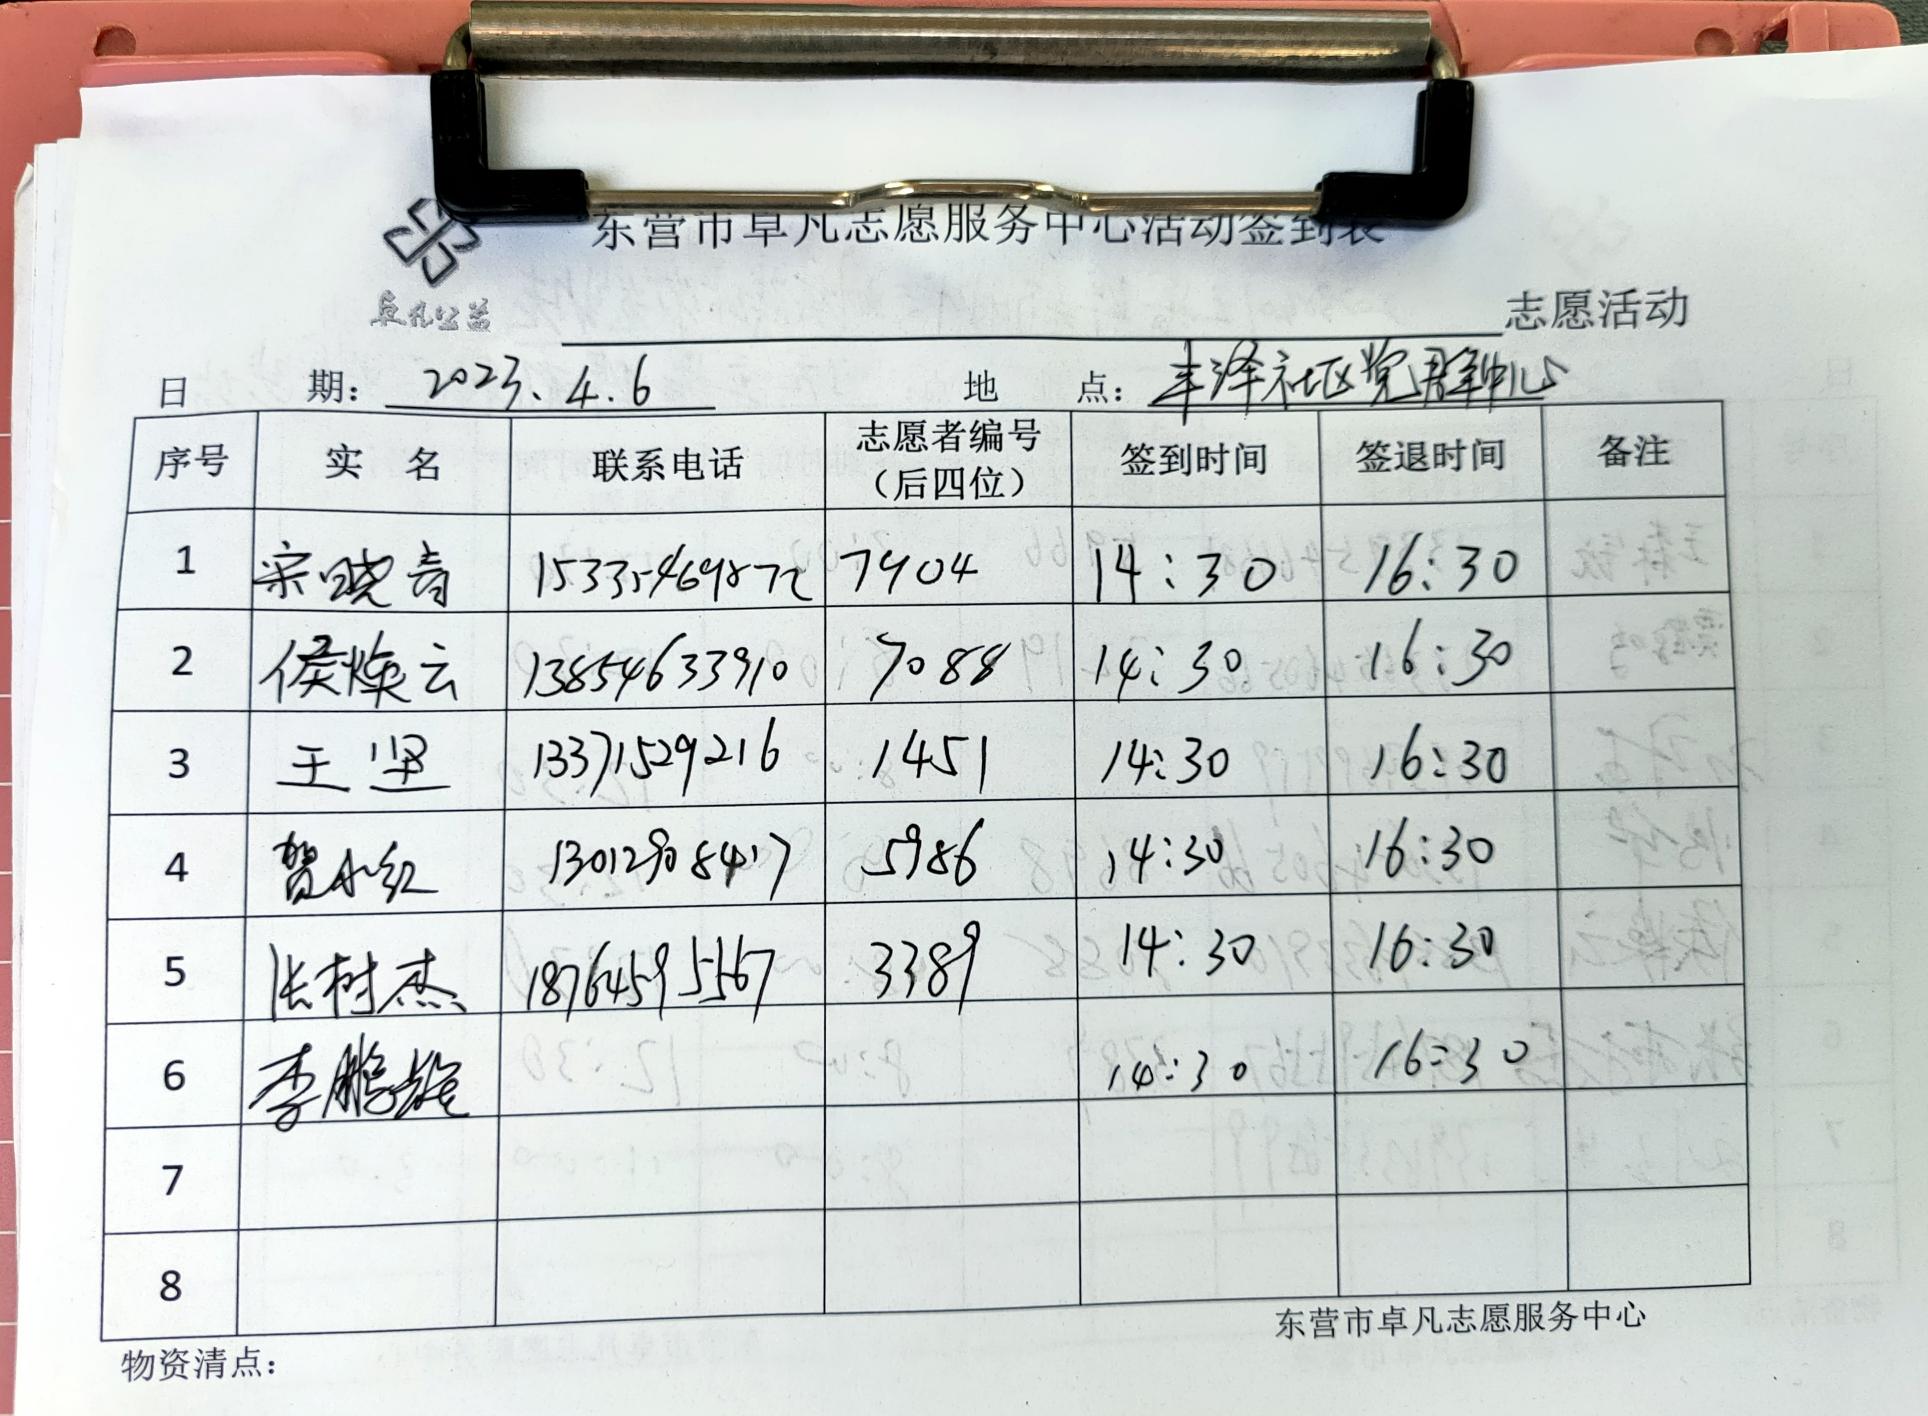 东营市卓凡志愿服务中心活动签到表
卓凡公益
志愿活动
日 期： 2023.4.6 地 点： 丰泽社区党群中心
序号 实 名 联系电话 志愿者编号（后四位） 签到时间 签退时间 备注
1 宋晓青 15335469872 7904 14:30 16:30
2 侯焕云 13854633910 7088 14:30 16:30
3 王坚 13371529216 1451 14:30 16:30
4 贺小红 13012908417 5986 14:30 16:30
5 张树杰 18764595567 3389 14:30 16:30
6 李鹏 14:30 16:30
7
8
东营市卓凡志愿服务中心
物资清点：